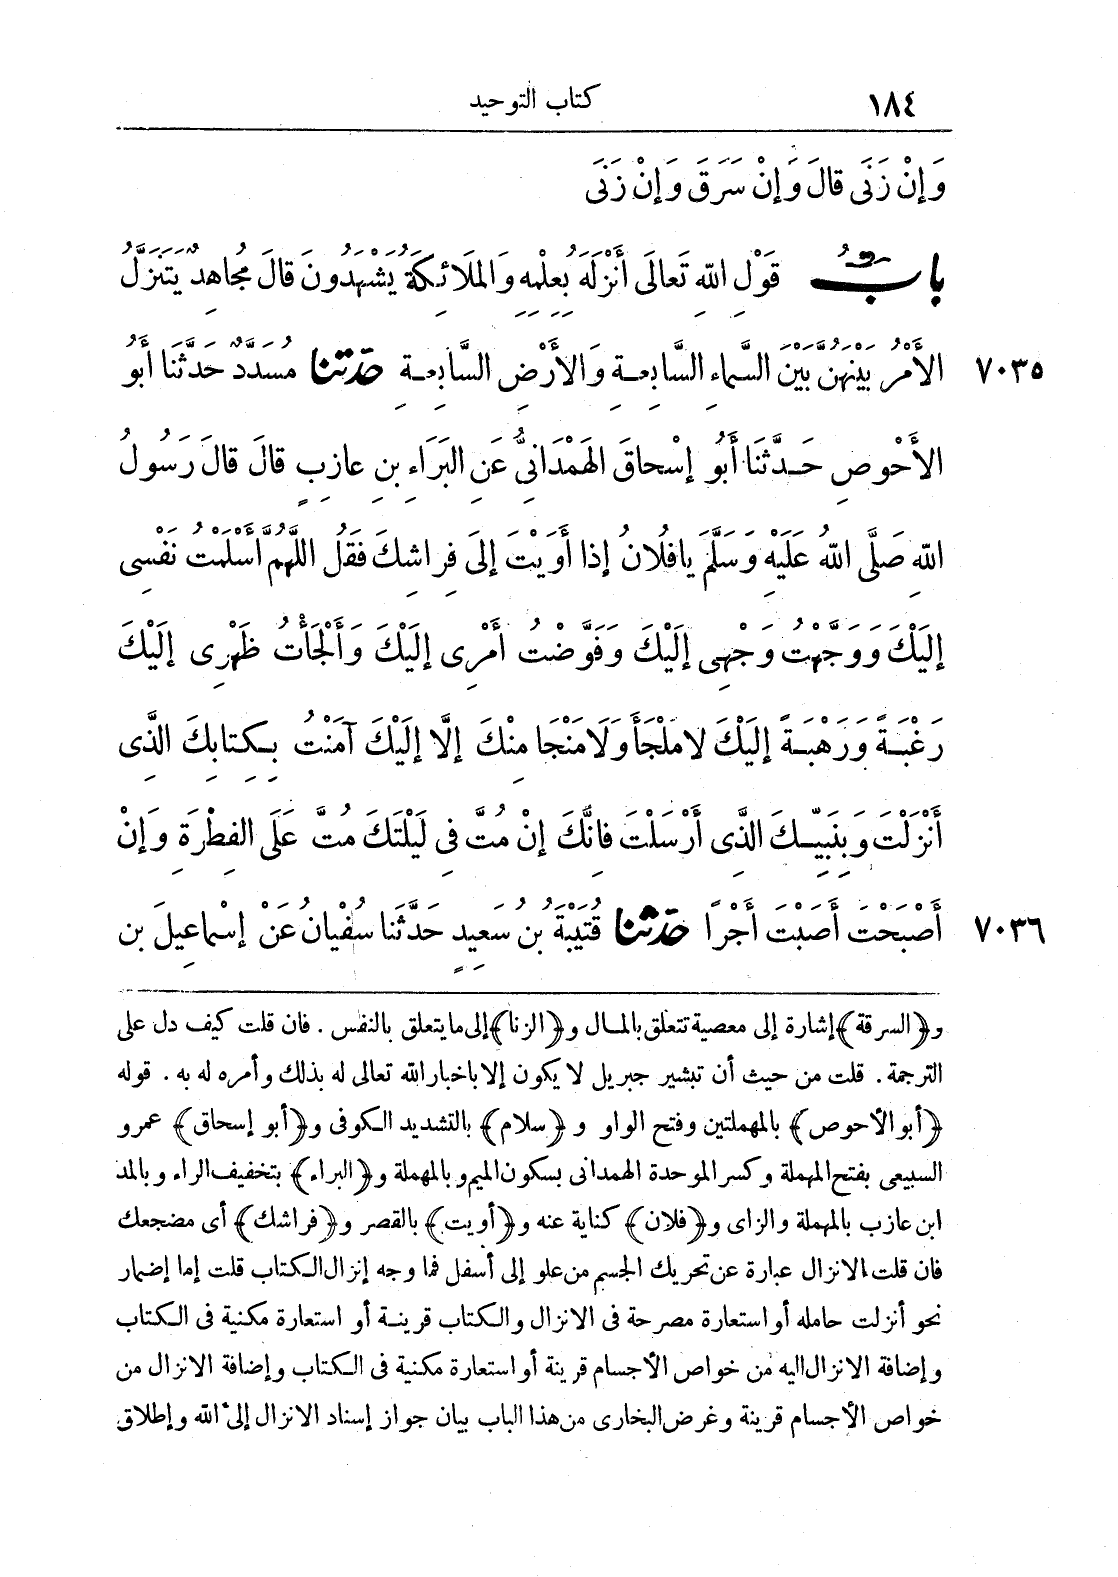 ١٨٤ كتاب التوحيد
وَإِنْ زَنَى قالَ وَإِنْ سَرَقَ وَإِنْ زَنَى
بابُ قَوْلِ اللهِ تَعالَى أَنْزَلَهُ بِعِلْمِهِ وَالمَلَائِكَةُ يَشْهَدُونَ قالَ مُجاهِدٌ يَتَنَزَّلُ
٧٠٣٥ الأَمْرُ بَيْنَهُنَّ بَيْنَ السَّماءِ السَّابِعَةِ وَالأَرْضِ السَّابِعَةِ حَدّثنا مُسَدَّدٌ حَدَّثَنا أَبُو
الأَحْوَصِ حَدَّثَنا أَبُو إِسْحاقَ الهَمْدَانِيُّ عَنِ البَرَاءِ بنِ عازِبٍ قالَ قالَ رَسُولُ
اللهِ صَلَّى اللهُ عَلَيْهِ وَسَلَّمَ يافُلَانُ إِذا أَوَيْتَ إِلىَ فِرِاشِكَ فَقُلِ اللَّهُمَّ أَسْلَمْتُ نَفْسِى
إِلَيْكَ وَوَجَّهْتُ وَجْهِى إِلَيْكَ وَفَوَّضْتُ أَمْرِى إِلَيْكَ وَأَلْجَأْتُ ظَهْرِى إِلَيْكَ
رَغْبَةً وَرَهْبَةً إِلَيْكَ لا مَلْجَأَ وَلَا مَنْجَا مِنْكَ إِلَّا إِلَيْكَ آمَنْتُ بِكِتابِكَ الَّذِى
أَنْزَلْتَ وَبِنَبِيِّكَ الَّذِى أَرْسَلْتَ فَانَّكَ إِنْ مُتَّ فِى لَيْلَتِكَ مُتَّ عَلَى الفِطْرَةِ وَإِنْ
٧٠٣٦ أَصْبَحْتَ أَصَبْتَ أَجْرًا حَدّثنا قُتَيْبَةُ بنُ سَعِيدٍ حَدَّثَنا سُفْيانُ عَنْ إِسْماعِيلَ بنِ
و﴿السرقة﴾ إشارة إلى معصية تتعلق بالمال و﴿الزنا﴾ إلى ما يتعلق بالنفس . فان قلت كيف دل على
الترجمة . قلت من حيث أن تبشير جبريل لا يكون إلا باخبار الله تعالى له بذلك وأمره له به . قوله
﴿أبو الأحوص﴾ بالمهملتين وفتح الواو و﴿سلام﴾ بالتشديد الكوفى و﴿أبو إسحاق﴾ عمرو
السبيعى بفتح المهملة وكسر الموحدة الهمدانى بسكون الميم و بالمهملة و﴿البراء﴾ بتخفيف الراء وبالمد
ابن عازب بالمهملة والزاى و﴿فلان﴾ كناية عنه و﴿أويت﴾ بالقصر و﴿فراشك﴾ أى مضجعك
فان قلت الانزال عبارة عن تحريك الجسم من علو إلى أسفل فما وجه إنزال الكتاب قلت إما إضمار
نحو أنزلت حامله أو استعارة مصرحة فى الانزال والكتاب قرينة أو استعارة مكنية فى الكتاب
وإضافة الانزال اليه من خواص الأجسام قرينة أو استعارة مكنية فى الكتاب وإضافة الانزال من
خواص الأجسام قرينة وغرض البخارى من هذا الباب بيان جواز إسناد الانزال إلى الله وإطلاق